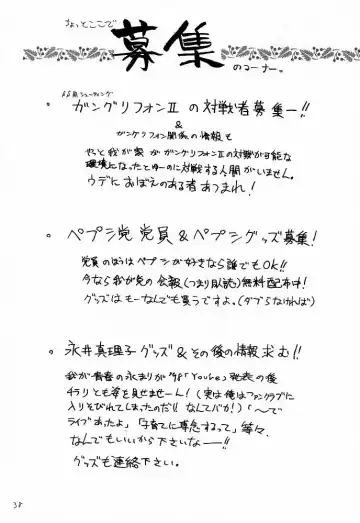 ちょっとここで
募集
のコーナー。
ガングリフォンⅡ の対戦者募集ー!!
&
ガングリフォン関係の情報も
やっと我が家がガングリフォンⅡの対戦が可能な
環境になったとゆーのに対戦する人間がいません。
ウデにおぼえのある者あつまれ!
ペプシ党 党員 & ペプシグッズ募集!
党員のほうはペプシが好きなら誰でもOK!!
今なら我が党の会報(つまり以読)無料配布中!
グッズはもーなんでも買うですよ。(ダブらなければ)
永井真理子グッズ&その後の情報求む!!
我が青春の永まりが'98「You&me」発表の後
チラリとも姿を見せませーん!(実は俺はファンクラブに
入りそびれてしまったのだ!! なんてバカ!)「〜で
ライブあったよ」「子育てに専念するって」等々、
なんでもいいから下さいなーー!!
グッズも連絡下さい。
38